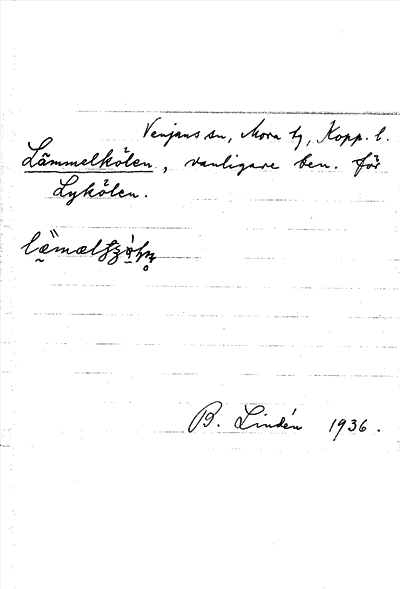 Venjans sn, Mora tg, Kopp. l.
Lämmelkölen, vanligare ben. för
Lykölen.
B. Lindén 1936.